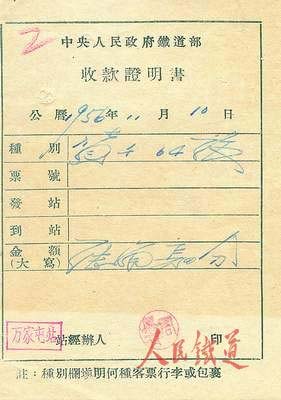 中央人民政府鐵道部
收款證明書
公曆1956年11月10日
種別
票號
發站
到站
金額
(大寫) 分
万家屯站
站經辦人 印
人民鐵道
註：種別欄填明何種客票行李或包裹